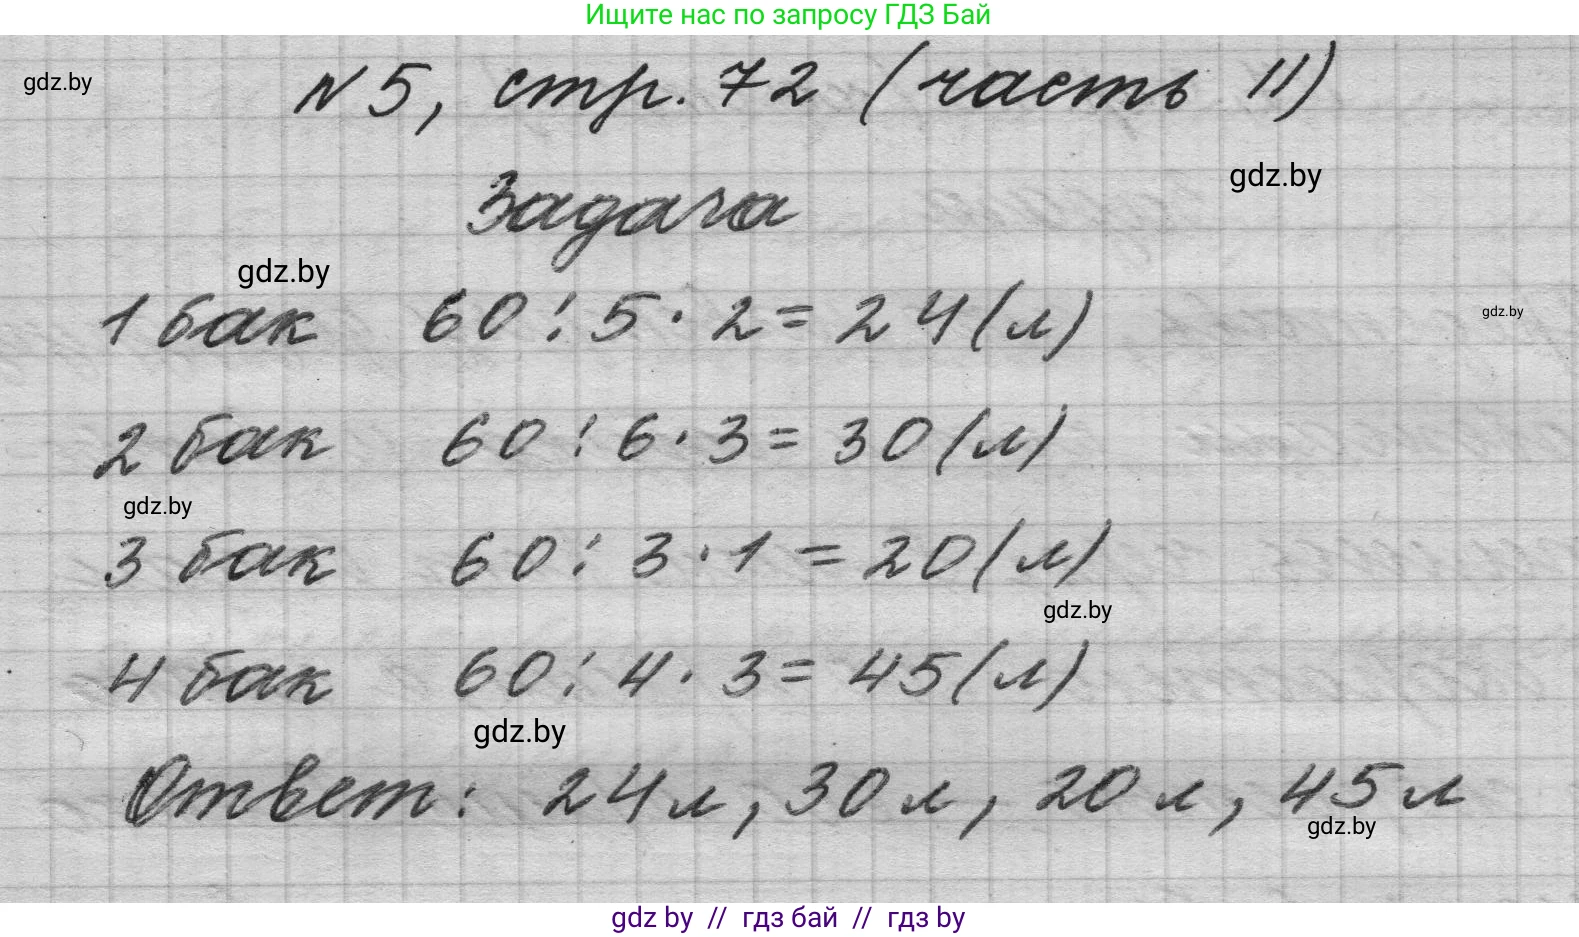 Ищите нас по запросу ГДЗ Бай
gdz.by
№5, стр. 72 (часть II)
gdz.by
Задача
gdz.by
1 бак 60 : 5 · 2 = 24 (л)
gdz.by
2 бак 60 : 6 · 3 = 30 (л)
gdz.by
3 бак 60 : 3 · 1 = 20 (л)
gdz.by
4 бак 60 : 4 · 3 = 45 (л)
gdz.by
Ответ: 24 л, 30 л, 20 л, 45 л
gdz.by
gdz by // гдз бай // гдз by